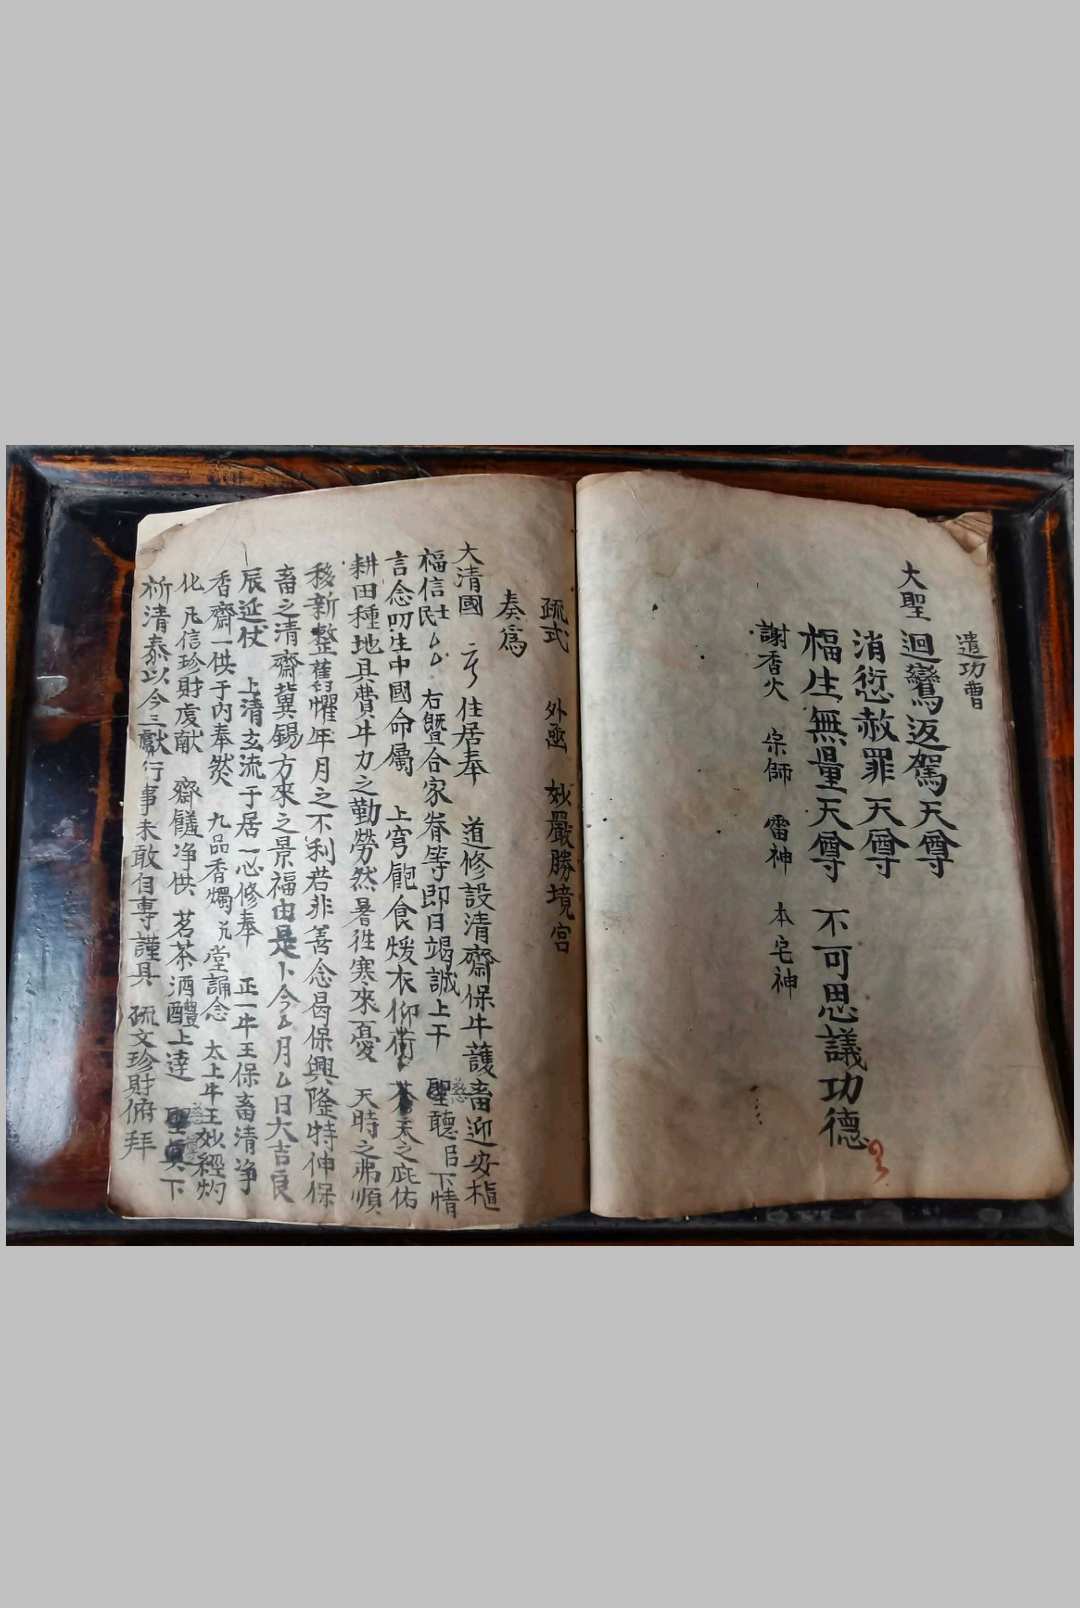 遣功曹
大聖 迴鸞返駕天尊
消愆赦罪天尊
福生無量天尊 不可思議功德
謝香火 宗師 雷神 本宅神
疏式 外函 妙嚴勝境宮
奏為
大清國 住居奉 道修設清齋保牛護畜迎安
福信士民厶厶 右暨合家眷等即日竭誠上干 聖聽 下情
言念叨生中國命屬 上穹飽食煖衣仰荷 天之庇佑
耕田種地具費牛力之勤勞然暑徃寒來憂 天時之弗順
移新整舊懼年月之不利若非善念曷保興隆特伸保
畜之清齋冀錫方來之景福由是卜今厶月厶日大吉良
辰延仗 上清玄流于居一心修奉 正一牛王保畜清净
香齋一供于内奉然 九品香燭 堂誦念 太上牛王妙經灼
化 凡信珍財虔献 齋饈净供 茗茶酒醴上達 聖真下
祈清泰以今三獻行事未敢自專謹具 疏文珍財俯拜